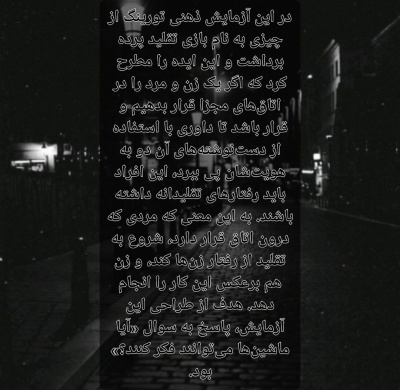 در این آزمایش ذهنی تورینگ از
چیزی به نام بازی تقلید پرده
برداشت و این ایده را مطرح
کرد که اگر یک زن و مرد را در
اتاق‌های مجزا قرار بدهیم و
قرار باشد تا داوری با استفاده
از دست‌نوشته‌های آن دو به
هویت‌شان پی ببرد، این افراد
باید رفتارهای تقلیدانه داشته
باشند. به این معنی که مردی که
درون اتاق قرار دارد، شروع به
تقلید از رفتار زن‌ها کند، و زن
هم برعکس این کار را انجام
دهد. هدف از طراحی این
آزمایش، پاسخ به سوال «آیا
ماشین‌ها می‌توانند فکر کنند؟»
بود.